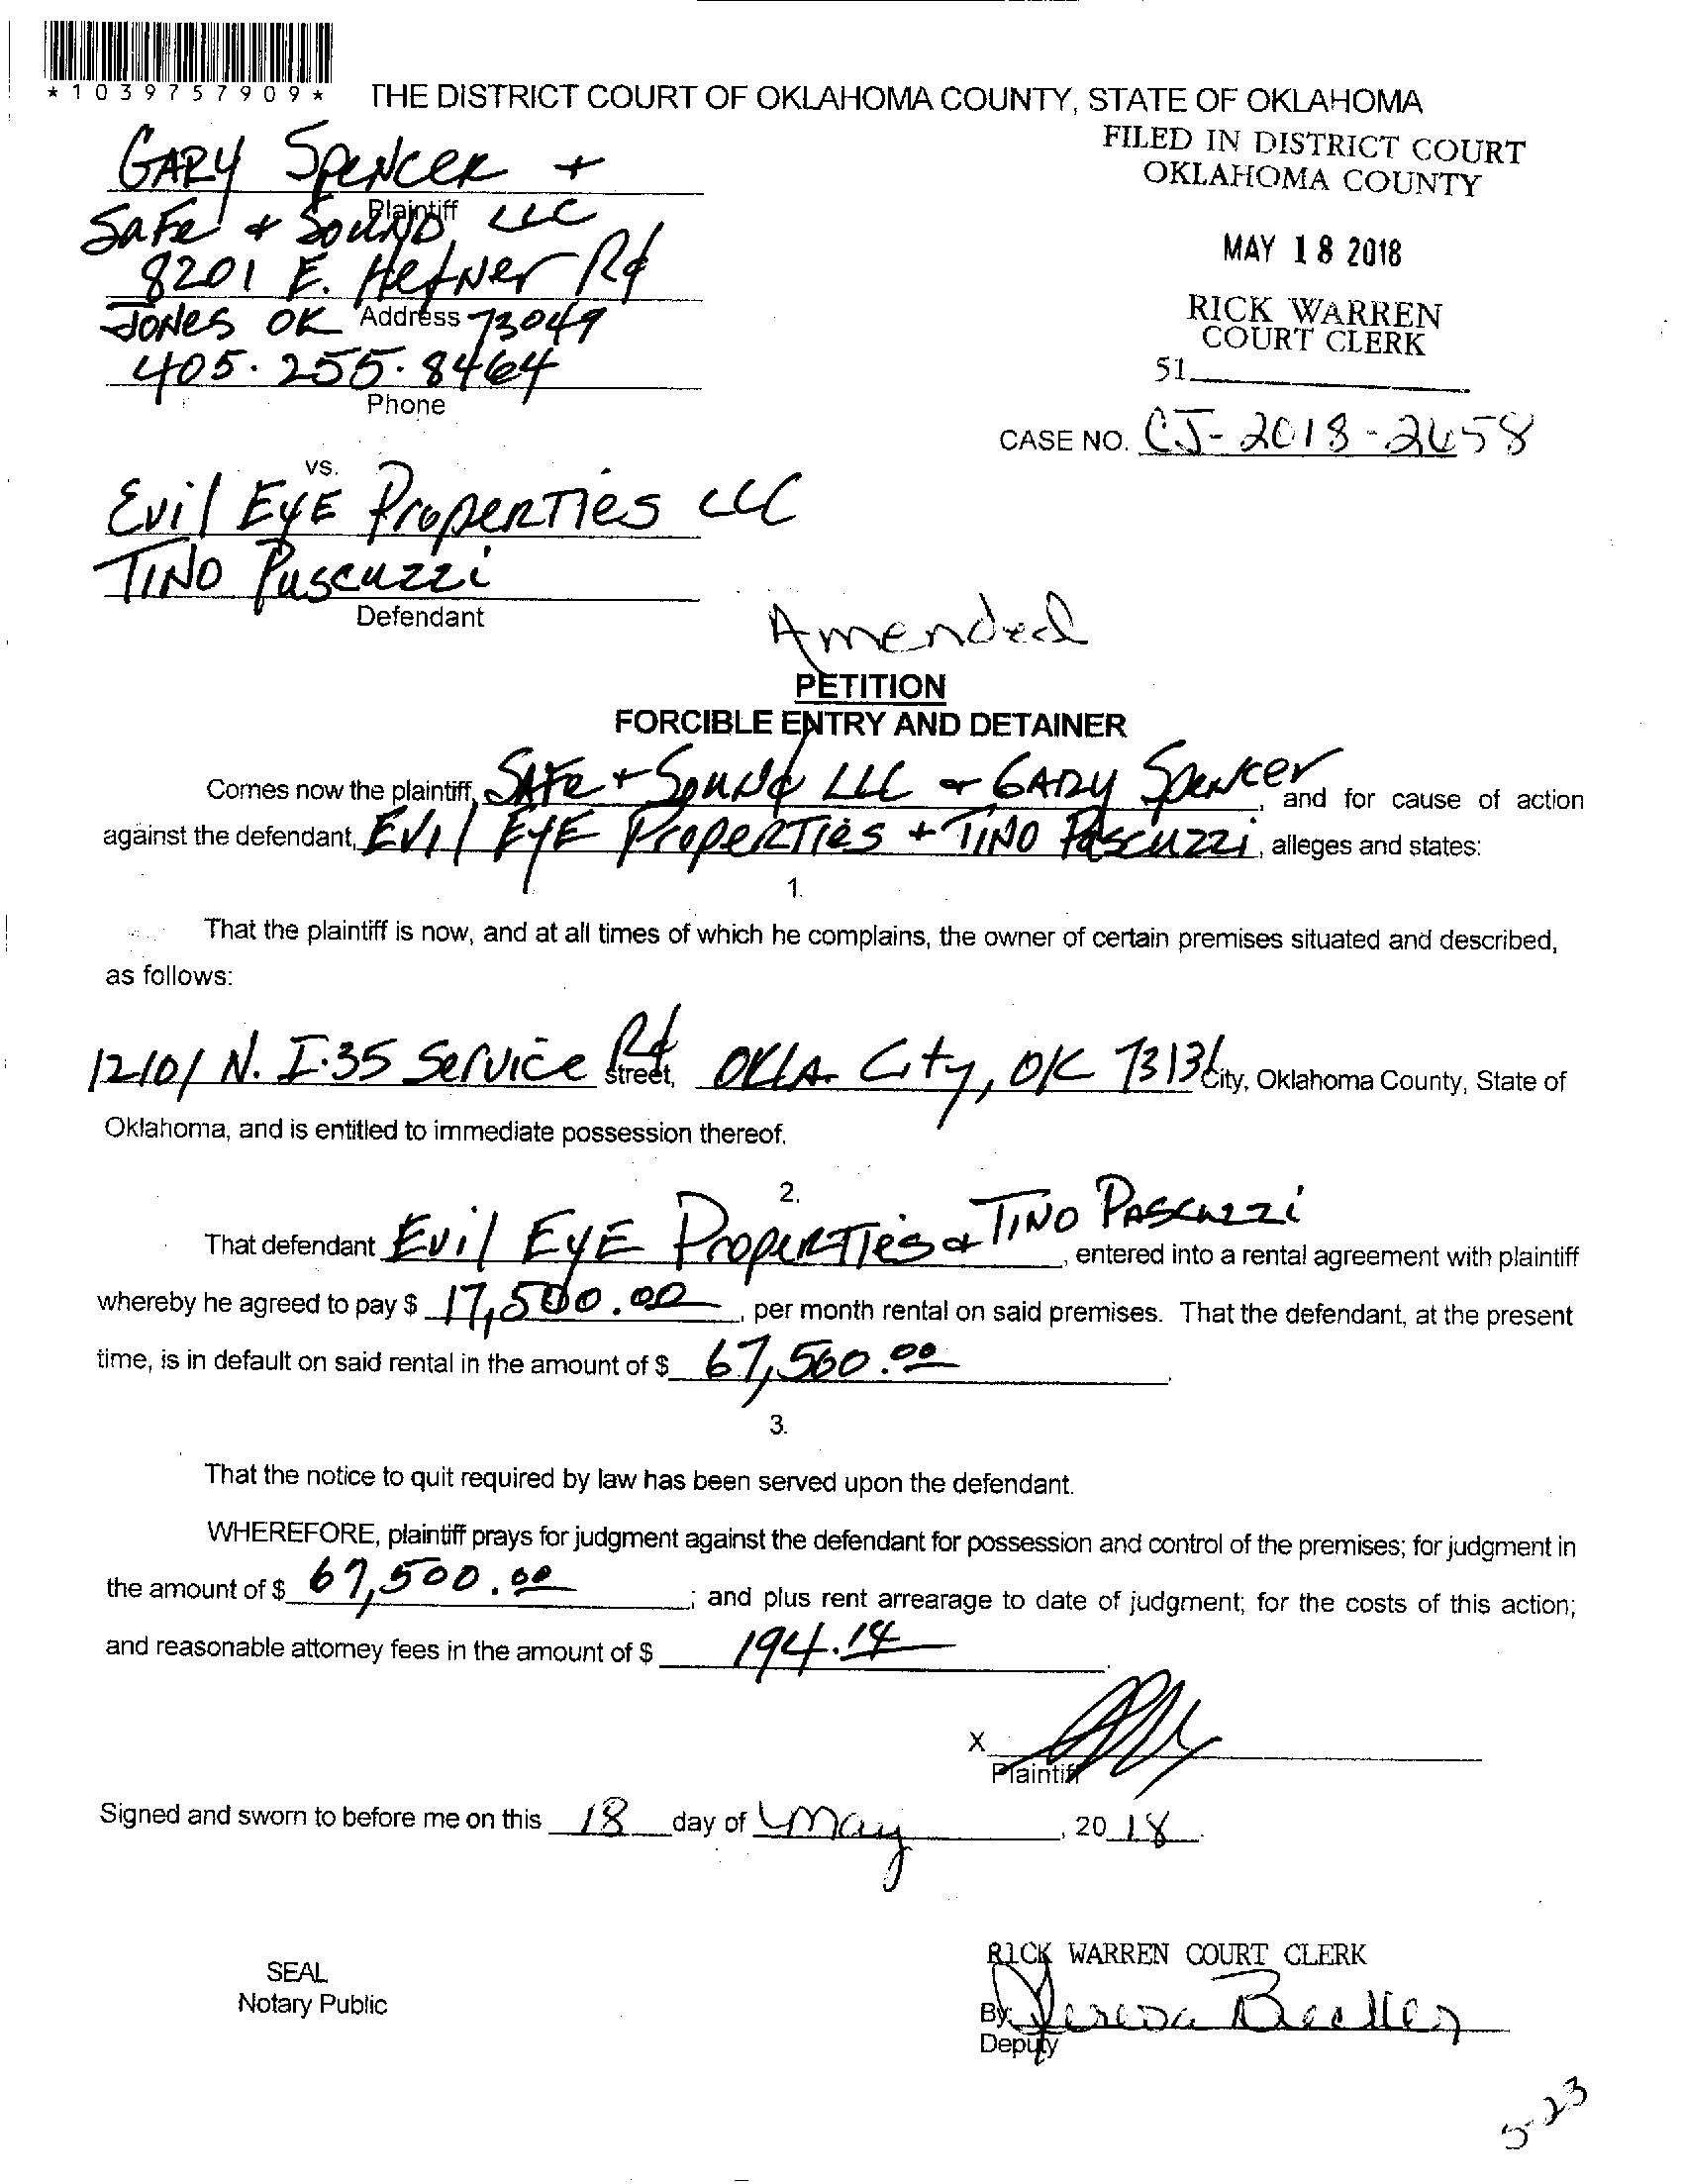 *1039757909*
THE DISTRICT COURT OF OKLAHOMA COUNTY, STATE OF OKLAHOMA
FILED IN DISTRICT COURT
OKLAHOMA COUNTY
MAY 18 2018
RICK WARREN
COURT CLERK
51
GARY SPENCER +
Plaintiff
SAFE + SOUND LLC
8201 E. Hefner Rd
Address
JONES OK 73049
405.255.8464
Phone
CASE NO. CJ-2018-2458
vs.
Evil EYE PROPERTIES LLC
TINO Puscuzzi
Defendant
Amended
PETITION
FORCIBLE ENTRY AND DETAINER
Comes now the plaintiff, SAFE + SOUND LLC + GARY SPENCER, and for cause of action
against the defendant, EVIl EYE PROPERTIES + TINO PASCUZZI, alleges and states:
1.
That the plaintiff is now, and at all times of which he complains, the owner of certain premises situated and described,
as follows:
12101 N. I-35 Service Rd Street, OKLA. City, OK 73131 City, Oklahoma County, State of
Oklahoma, and is entitled to immediate possession thereof.
2.
That defendant Evil EYE PROPERTIES + TINO PASCUZZI, entered into a rental agreement with plaintiff
whereby he agreed to pay $ 17,500.00, per month rental on said premises. That the defendant, at the present
time, is in default on said rental in the amount of $ 67,500.00.
3.
That the notice to quit required by law has been served upon the defendant.
WHEREFORE, plaintiff prays for judgment against the defendant for possession and control of the premises; for judgment in
the amount of $ 67,500.00; and plus rent arrearage to date of judgment; for the costs of this action;
and reasonable attorney fees in the amount of $ 194.14.
X
Plaintiff
Signed and sworn to before me on this 18 day of May, 20 18.
SEAL
Notary Public
RICK WARREN COURT CLERK
By Teresa
Deputy
5-23